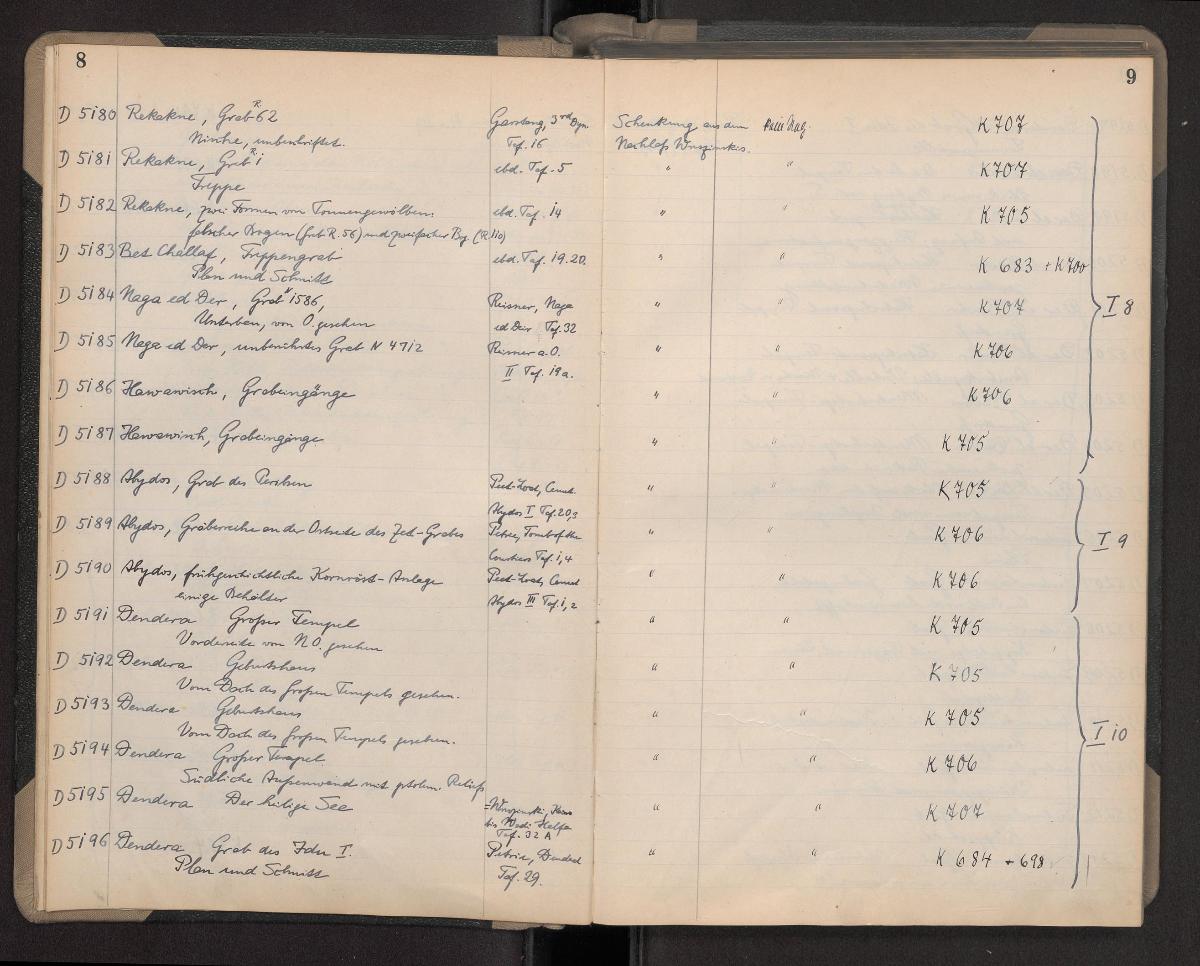 8
9
D 5180 Rekakne, Grab R. 62 Garstang, 3rd Dyn. Schenkung aus dem K 707
Nische, unbeschriftet. Taf. 16 Nachlaß Wreszinskis.
D 5181 Rekakne, Grab R. 1 ebd. Taf. 5 " " K 707
Treppe
D 5182 Rekakne, zwei Formen von Tonnengewölben: ebd. Taf. 14 " " K 705
falscher Bogen (Grab R. 56) und zweifacher Bg. (R. 110)
D 5183 Bet Challaf, Treppengrab ebd. Taf. 19.20. " " K 683 + K700
Plan und Schnitt
D 5184 Naga ed Der, Grab N 1586, Reisner, Naga " " K 707 I 8
Unterbau, von O. gesehen ed Deir Taf. 32
D 5185 Naga ed Der, unberührtes Grab N 4712 Reisner a.O. " " K 706
II Taf. 19a.
D 5186 Hawawisch, Grabeingänge " " K 706
D 5187 Hawawisch, Grabeingänge " " K 705
D 5188 Abydos, Grab des Peribsen Peet-Loat, Cemet. " " K 705
Abydos I Taf. 20,3
D 5189 Abydos, Gräberreihe an der Ostseite des Zet-Grabes Petrie, Tombs of the " " K 706 I 9
Courtiers Taf. 1,4
D 5190 Abydos, frühgeschichtliche Kornröst-Anlage Peet-Loat, Cemet " " K 706
einige Behälter Abydos III Taf. 1,2
D 5191 Dendera Großer Tempel " " K 705
Vorderseite von NO. gesehen
D 5192 Dendera Geburtshaus " " K 705
Vom Dach des großen Tempels gesehen.
D 5193 Dendera Geburtshaus " " K 705
Vom Dach des großen Tempels gesehen. I 10
D 5194 Dendera Großer Tempel " " K 706
Südliche Außenwand mit ptolem. Reliefs
D 5195 Dendera Der heilige See = Wreszinski, Kairo " " K 707
bis Wadi Halfa
Taf. 32 A
D 5196 Dendera Grab des Idu I. Petrie, Dendereh " " K 684 + 698
Plan und Schnitt Taf. 29.